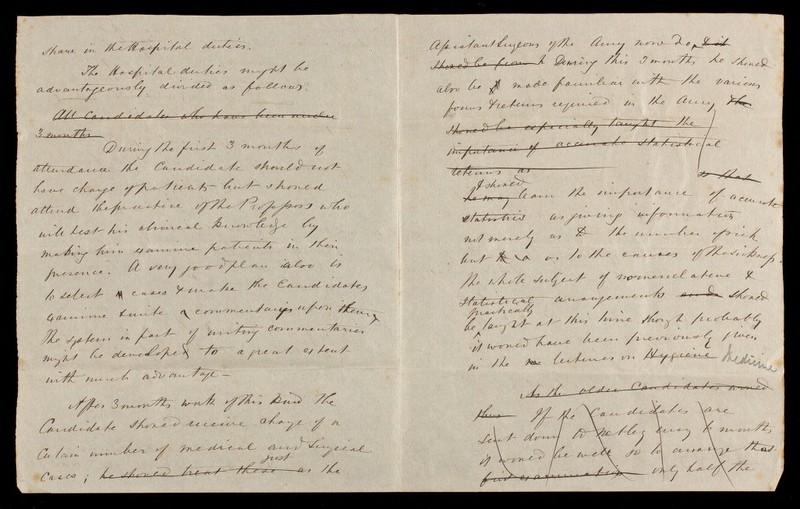 share in the Hospital duties.
The Hospital duties might be
advantageously divided as follows.
All Candidates who have been under
3 months
During the first 3 months of
attendance the Candidate should not
have charge of patients but should
attend the practice of the Profssors who
will test his clinical knowledge by
making him examine patients in their
presence. A very good plan also is
to select cases & make the Candidates
examine & write a commentary upon them
The system in fact of writing commentaries
might be developed to a great extent
with much advantage –
After 3 months work of this kind the
Candidate should receive charge of a
Certain number of medical and Surgical
Cases; he should treat these just as the
Assistant Surgeons of the Army now do, & it
should be from h During this 3 months he should
also be made familiar with the various
forms & returns required in the Army, the
should be especially taught the
importance of accurate statistical
returns as so that
he may & should learn the importance of accurate
statistics as giving information
not merely as to the number of sick
but as to the causes of the sickness.
The whole subject of nomenclature &
Statistical arrangements should
be practically taught at this time though probably
it would have been previously given
in the lectures on Hygiene Medicine
As the older Candidates would
thus If the Candidates are
sent down to Netley every 6 months
it would be well so to arrange that
first examination only half the